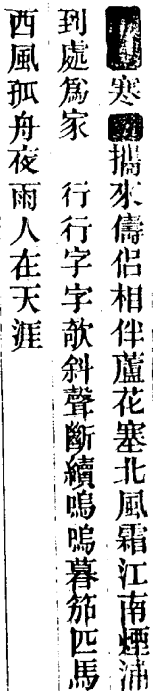 寒 攜來儔侶相伴蘆花塞北風霜江南煙浦
到處爲家　行行字字欹斜聲斷續嗚嗚暮笳匹馬
西風孤舟夜雨人在天涯